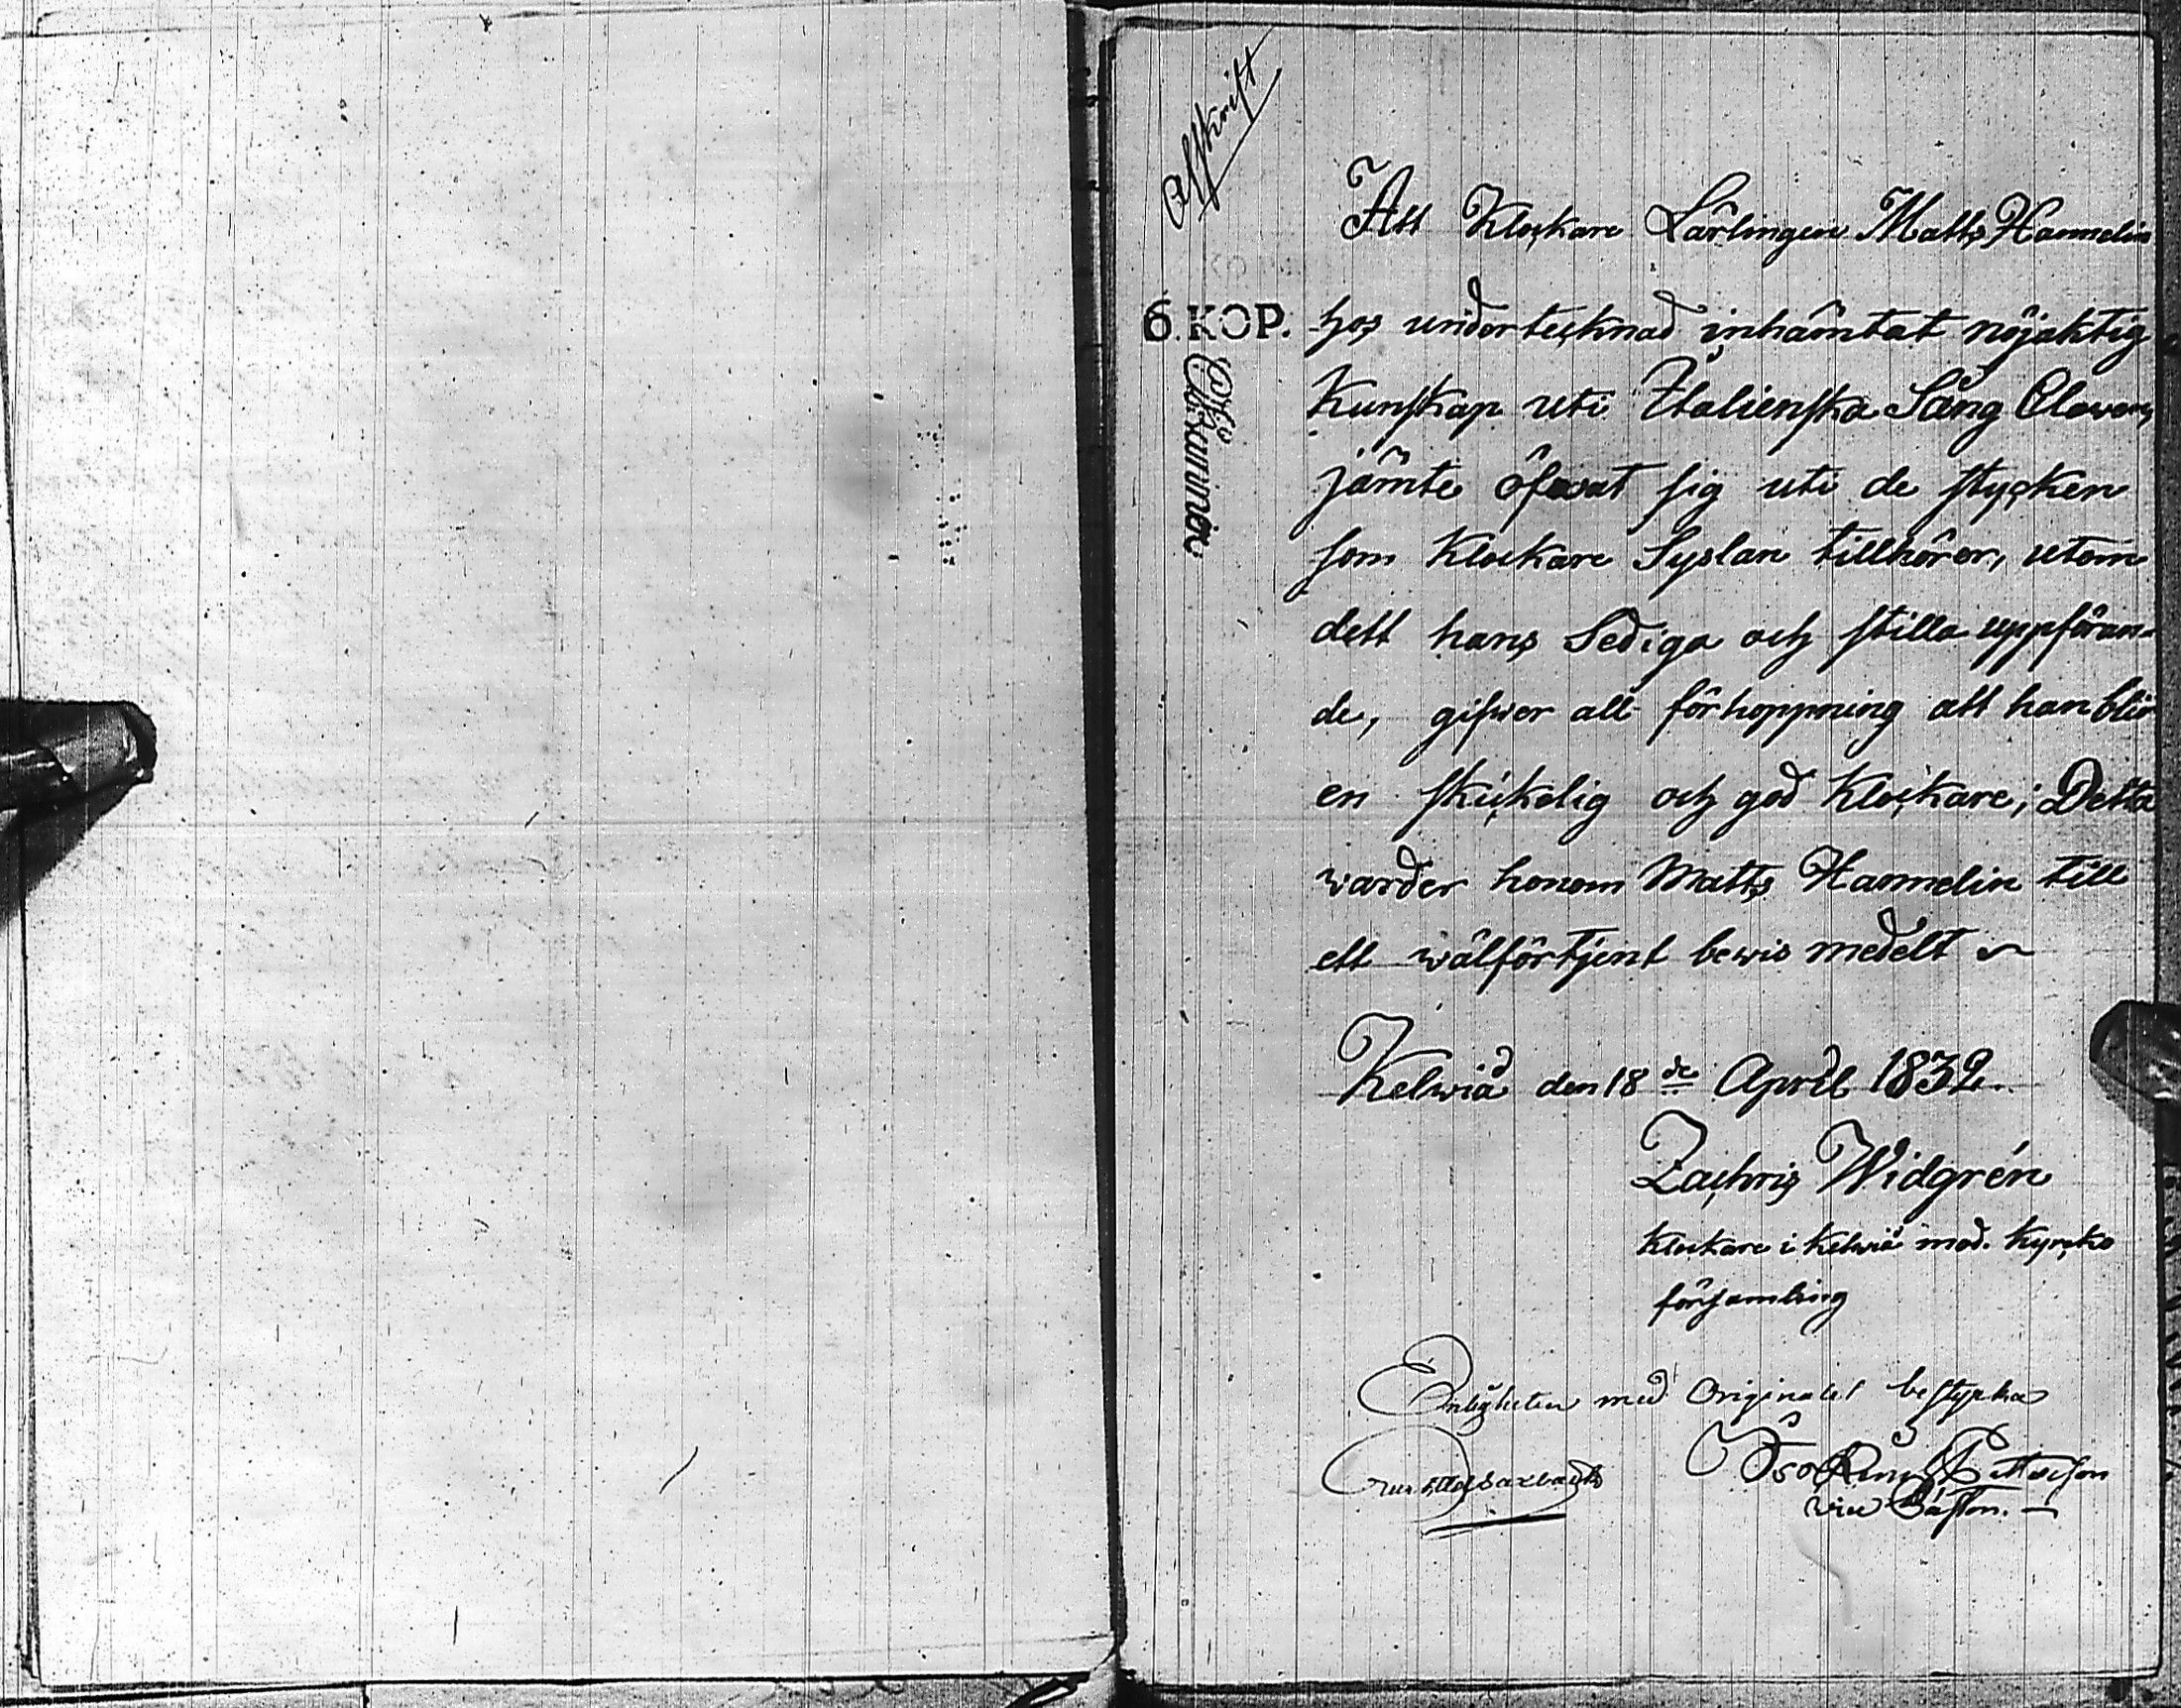 Afskrift
Att Klockare Lärlingen Matts Hannelin
6. KOP.
hos undertecknad inhämtat nöjaktig
Kunskap uti Italienska Sång Claven,
jämte öfwat sig uti de stycken
som Klockare Syslan tillhörer, utom
dett hans Sediga och stilla uppföran-
de, gifwer all förhoppning att han blir
en skickelig och god Klockare; Detta
warder honom Matts Hannelin till
ett wälförtjent bewis medelt
Kelwiå den 18de April 1832.
Zachris Widgrén
Klockare i Kelwiå mod. Kyrcko
församling
Enligheten med Originalet bestyrka
Pettersson
vice Pastor.